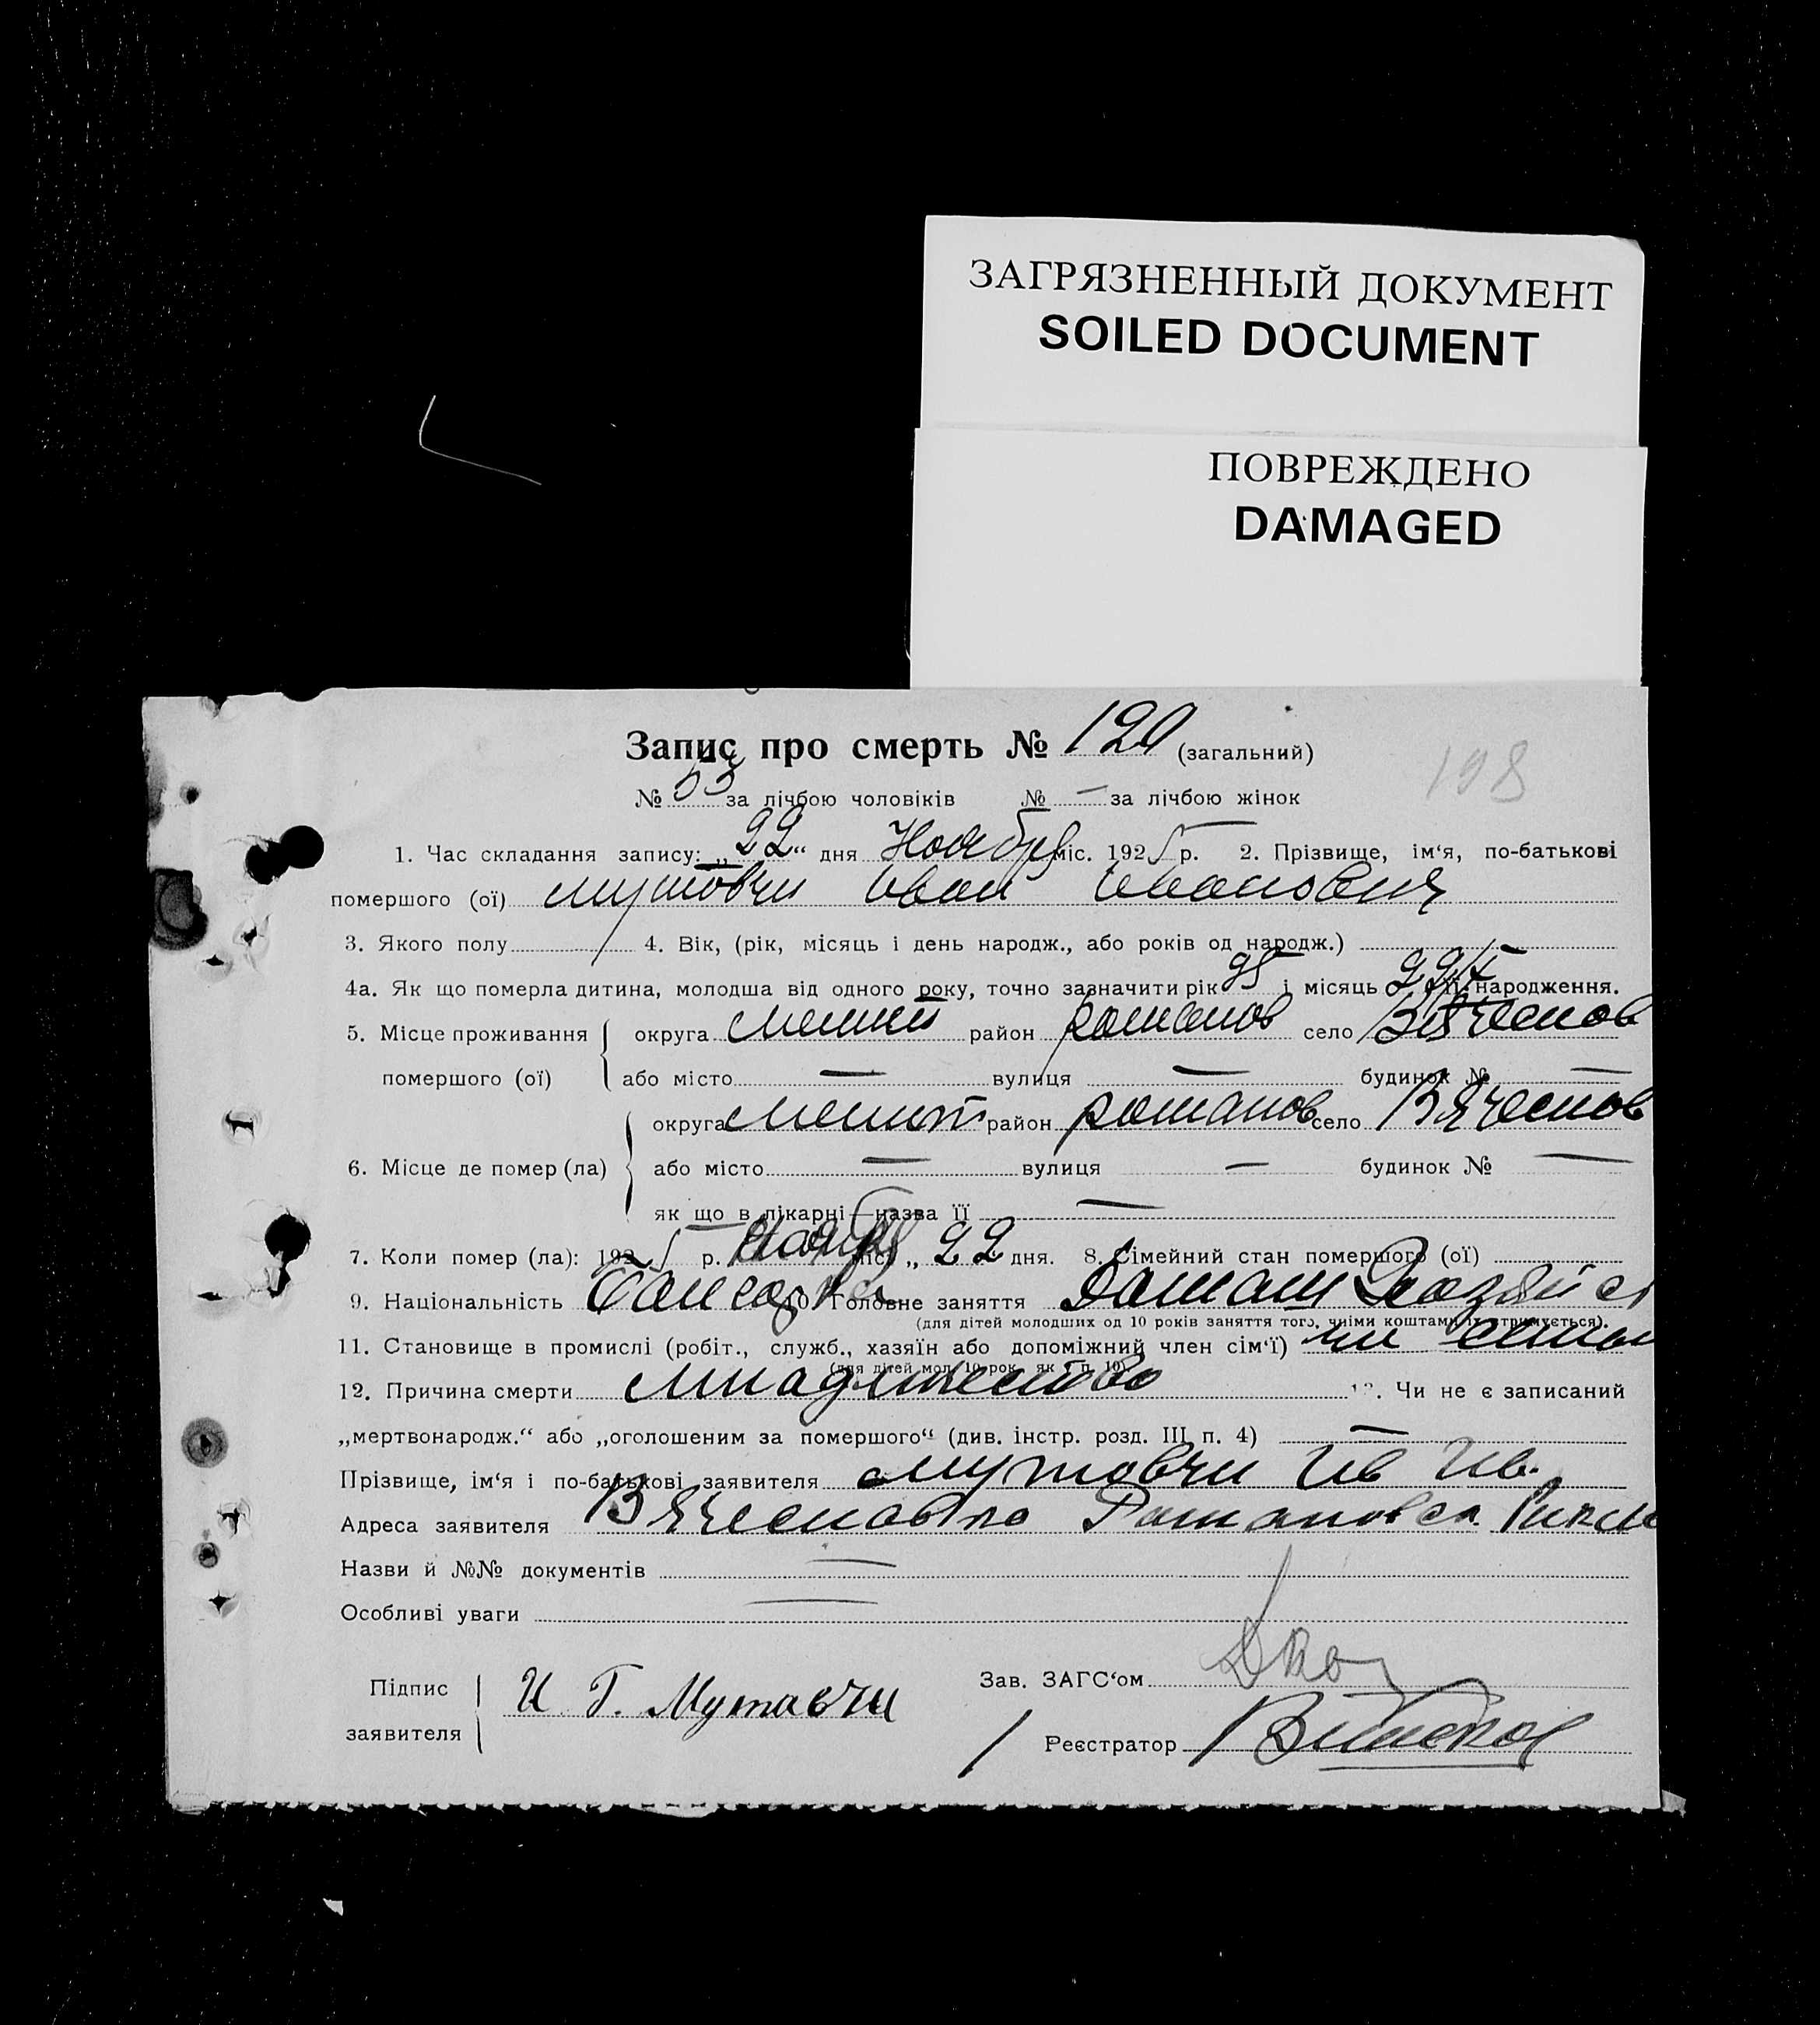 ЗАГРЯЗНЕННЫЙ ДОКУМЕНТ
SOILED DOCUMENT
ПОВРЕЖДЕНО
DAMAGED
Запис про смерть № 120 (загальний)
198
№ 53 за лічбою чоловіків № — за лічбою жінок
1. Час складання запису: „22“ дня Ноября міс. 1925 р. 2. Прізвище, ім‘я, по-батькові
помершого (ої) Мутовчи Иван Иванович
3. Якого полу 4. Вік, (рік, місяць і день народж., або років од народж.)
4а. Як що померла дитина, молодша від одного року, точно зазначити рік 25 і місяць 22/X її народження.
5. Місце проживання округа район Романов село Вячеслов
помершого (ої) або місто — вулиця — будинок № —
округа район Романов село Вячеслов
6. Місце де помер (ла) або місто — вулиця — будинок № —
як що в лікарні—назва її —
7. Коли помер (ла): 1925 р. Ноября міс. „22 дня. 8. Сімейний стан помершого (ої)
9. Національність 10. Головне заняття Домаш
(для дітей молодших од 10 років заняття того, чиїми коштами їх утримується).
11. Становище в промислі (робіт., служб., хазяїн або допоміжний член сім‘ї) чл семьи
(для дітей мол. 10 рок. як і п. 10)
12. Причина смерти 13. Чи не є записаний
„мертвонародж.“ або „оголошеним за помершого“ (див. інстр. розд. III п. 4) —
Прізвище, ім‘я і по-батькові заявителя Мутовчи Ив Ив.
Адреса заявителя
Назви й №№ документів —
Особливі уваги —
Підпис
заявителя И Г. Мутавчи
Зав. ЗАГС‘ом
Реєстратор